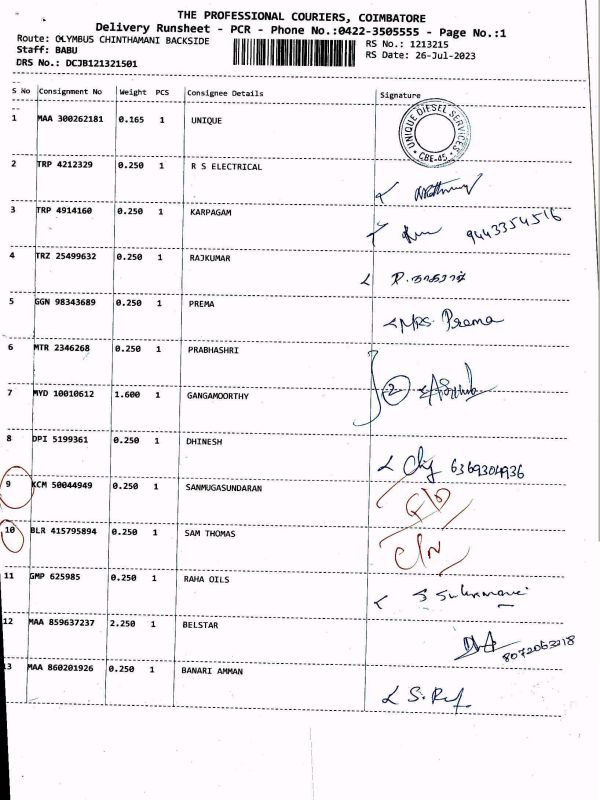 THE PROFESSIONAL COURIERS, COIMBATORE
Delivery Runsheet - PCR - Phone No.:0422-3505555 - Page No.:1
Route: OLYMBUS CHINTHAMANI BACKSIDE RS No.: 1213215
Staff: BABU RS Date: 26-Jul-2023
DRS No.: DCJB121321501
S No Consignment No Weight PCS Consignee Details Signature
1 MAA 300262181 0.165 1 UNIQUE UNIQUE DIESEL SERVICES * CBE-45. *
2 TRP 4212329 0.250 1 R S ELECTRICAL
3 TRP 4914160 0.250 1 KARPAGAM 9443354516
4 TRZ 25499632 0.250 1 RAJKUMAR
5 GGN 98343689 0.250 1 PREMA Mrs. Prema
6 MTR 2346268 0.250 1 PRABHASHRI
7 MYD 10010612 1.600 1 GANGAMOORTHY 2
8 DPI 5199361 0.250 1 DHINESH 6369304936
9 KCM 50044949 0.250 1 SANMUGASUNDARAN
10 BLR 415795894 0.250 1 SAM THOMAS C/N
11 GMP 625985 0.250 1 RAHA OILS
12 MAA 859637237 2.250 1 BELSTAR
13 MAA 860201926 0.250 1 BANARI AMMAN